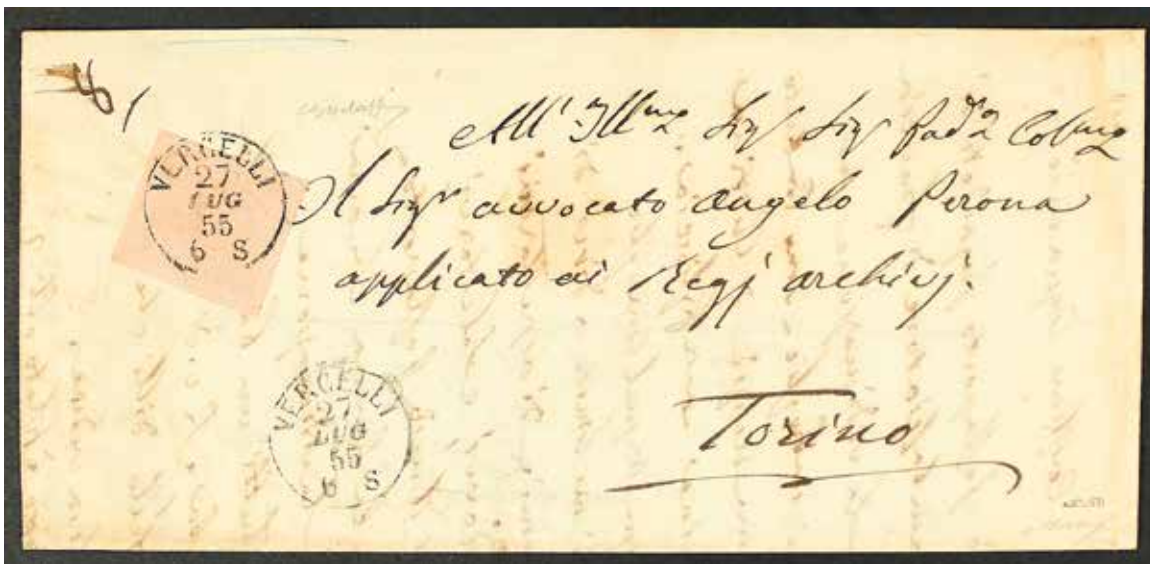 81
VERCELLI
27
LUG
55
6 S
All' Ill.mo Sig.r Sig.r Pad.e Col.mo
Il Sig.r avvocato Angelo Perona
applicato ai Regj archivj.
VERCELLI
27
LUG
55
6 S
Torino